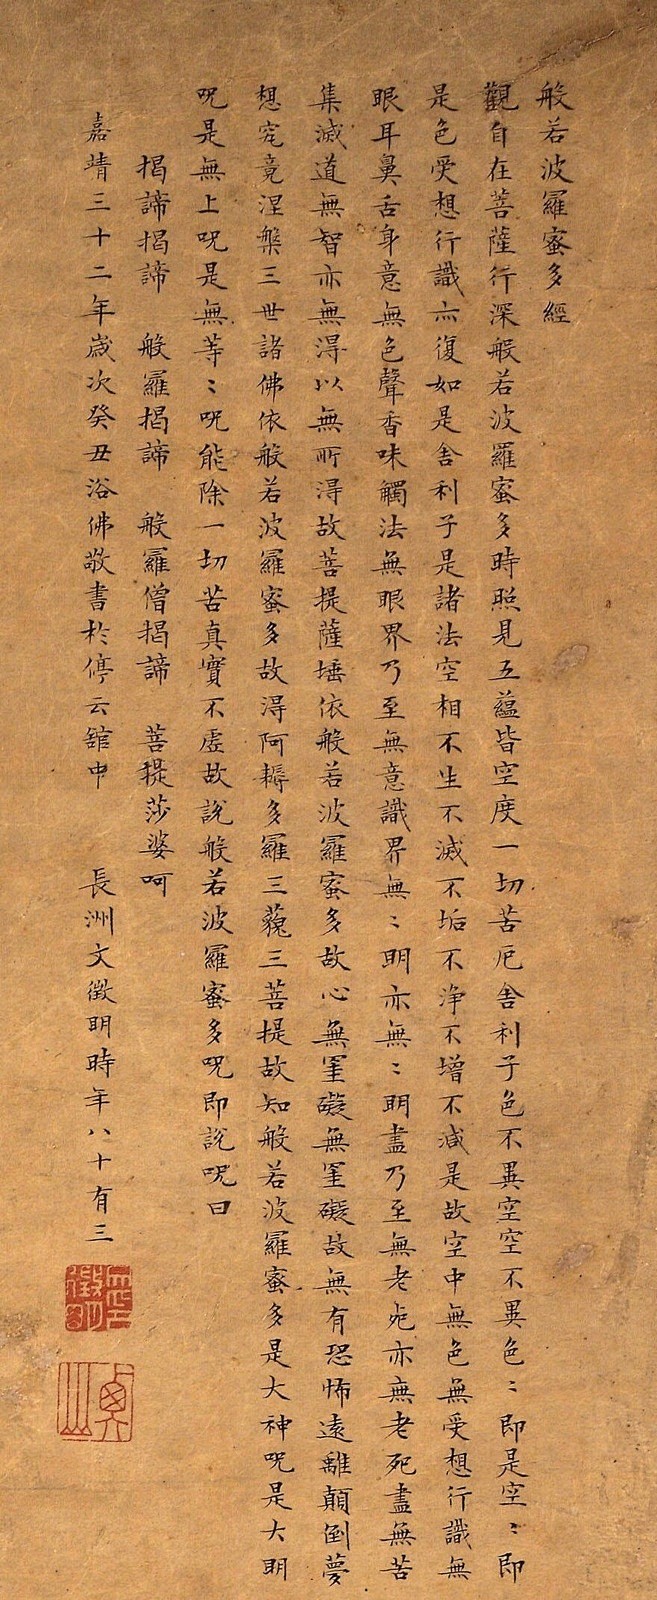 般若波羅蜜多經
觀自在菩薩行深般若波羅蜜多時照見五蘊皆空度一切苦厄舍利子色不異空空不異色〻即是空〻即
是色受想行識亦復如是舍利子是諸法空相不生不滅不垢不淨不增不減是故空中無色無受想行識無
眼耳鼻舌身意無色聲香味觸法無眼界乃至無意識界無〻明亦無〻明盡乃至無老死亦無老死盡無苦
集滅道無智亦無得以無所得故菩提薩埵依般若波羅蜜多故心無罣礙無罣礙故無有恐怖遠離顛倒夢
想究竟涅槃三世諸佛依般若波羅蜜多故得阿耨多羅三藐三菩提故知般若波羅蜜多是大神呪是大明
呪是無上呪是無等〻呪能除一切苦真實不虛故說般若波羅蜜多呪即說呪曰
揭諦揭諦 般羅揭諦 般羅僧揭諦 菩提莎婆呵
嘉靖三十二年歲次癸丑浴佛敬書於停云館中 長洲文徵明時年八十有三